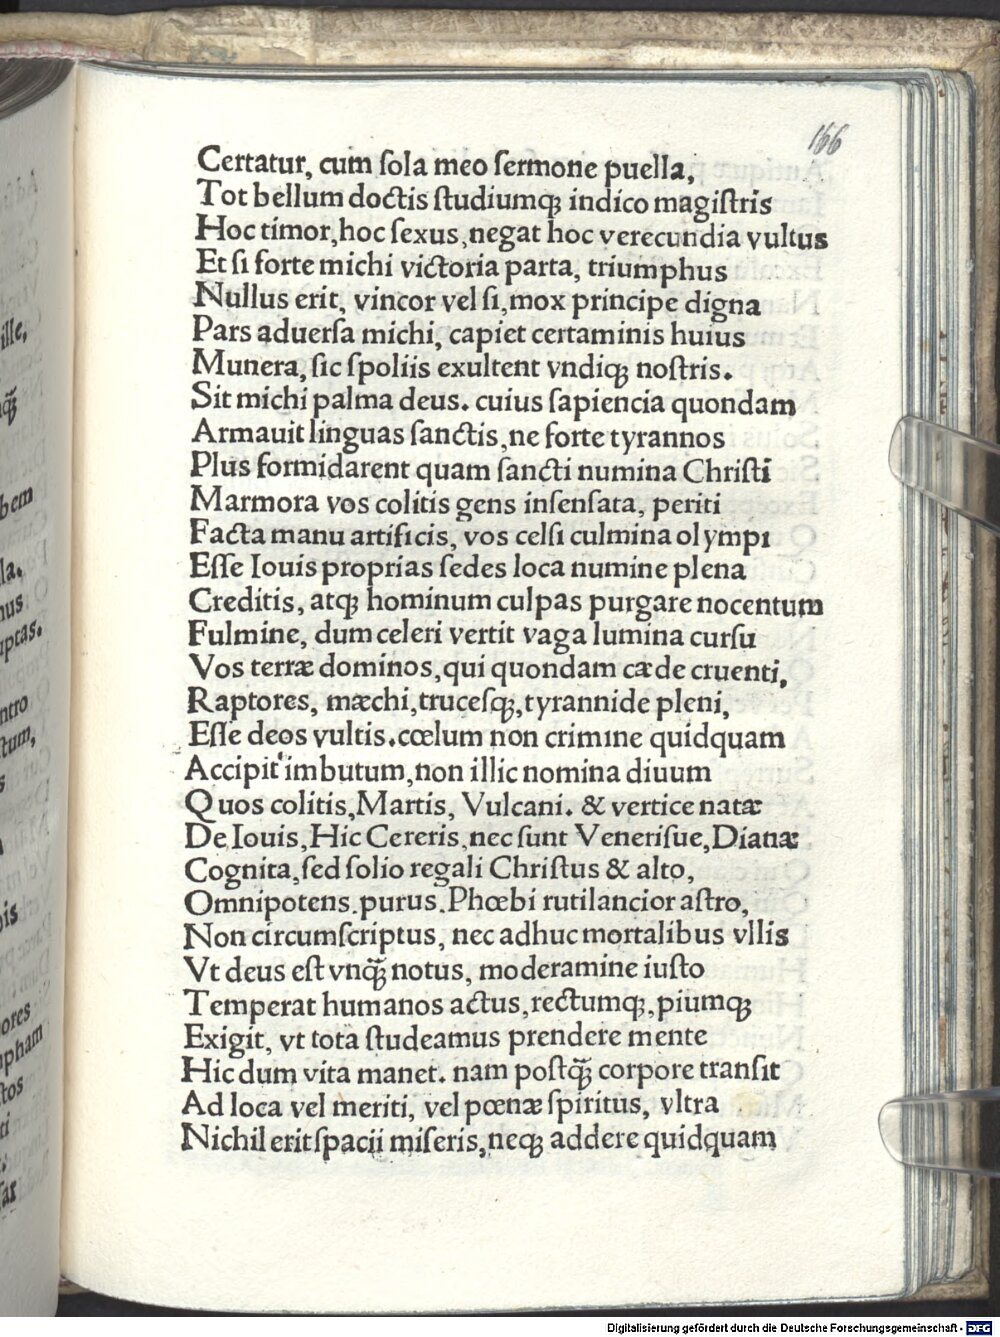 166
Certatur, cum ſola meo ſermone puella,
Tot bellum doctis ſtudiumqꝫ indico magiſtris
Hoc timor,hoc ſexus,negat hoc verecundia vultus
Et ſi forte michi victoria parta, triumphus
Nullus erit, vincor vel ſi,mox principe digna
Pars aduerſa michi, capiet certaminis huius
Munera, ſic ſpoliis exultent vndiqꝫ noſtris.
Sit michi palma deus. cuius ſapiencia quondam
Armauit linguas ſanctis,ne forte tyrannos
Plus formidarent quam ſancti numina Chriſti
Marmora vos colitis gens inſenſata, periti
Facta manu artificis, vos celſi culmina olympi
Eſſe Iouis proprias ſedes loca numine plena
Creditis, atqꝫ hominum culpas purgare nocentum
Fulmine, dum celeri vertit vaga lumina curſu
Vos terræ dominos,qui quondam cæde cruenti,
Raptores, mæchi,truceſqꝫ,tyrannide pleni,
Eſſe deos vultis.cœlum non crimine quidquam
Accipit imbutum,non illic nomina diuum
Quos colitis,Martis, Vulcani. & vertice natæ
De Iouis,Hic Cereris,nec ſunt Veneriſue,Dianæ
Cognita,ſed ſolio regali Chriſtus & alto,
Omnipotens.purus.Phœbi rutilancior aſtro,
Non circumſcriptus, nec adhuc mortalibus vllis
Vt deus eſt vnqꝫ̃ notus, moderamine iuſto
Temperat humanos actus,rectumqꝫ,piumqꝫ
Exigit, vt tota ſtudeamus prendere mente
Hic dum vita manet. nam poſtqꝫ̃ corpore tranſit
Ad loca vel meriti, vel pœnæ ſpiritus, vltra
Nichil erit ſpacij miſeris,neqꝫ addere quidquam
ille,
qꝫ̃
bem
la.
nus
uptas.
ntro
tum,
s
ois
ores
mpham
ſtos
ti
ſar
Digitalisierung gefördert durch die Deutsche Forschungsgemeinschaft - DFG